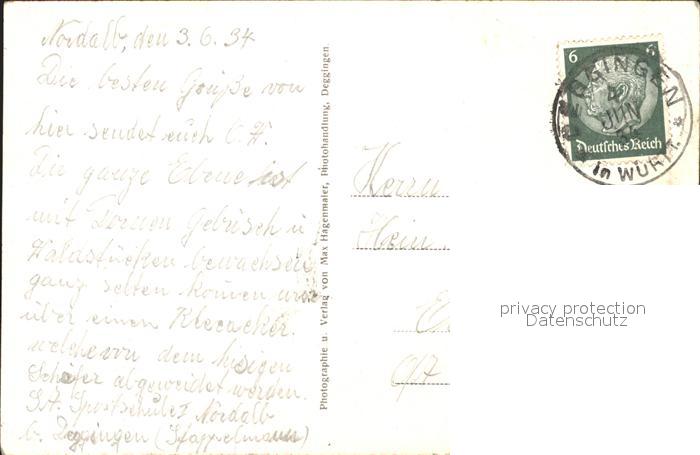 Nordalb, den 3.6.34
Die besten Grüße von
hier sendet euch O. H.
Die ganze Ebene ist
mit Dornen Gebüsch u
Waldstücken bewachsen
ganz selten können wir
über einen Kleeacker.
welche von dem hisigen
Schäfer abgeweidet werden.
Sportschule Nordalb
b. Deggingen (Stappelmann)
Photographie u. Verlag von Max Hagenmaier, Photohandlung, Deggingen.
Herrn
Hein
6 6
Deutsches Reich
DEGGINGEN
4
JUN
34
in WÜRTT.
privacy protection
Datenschutz